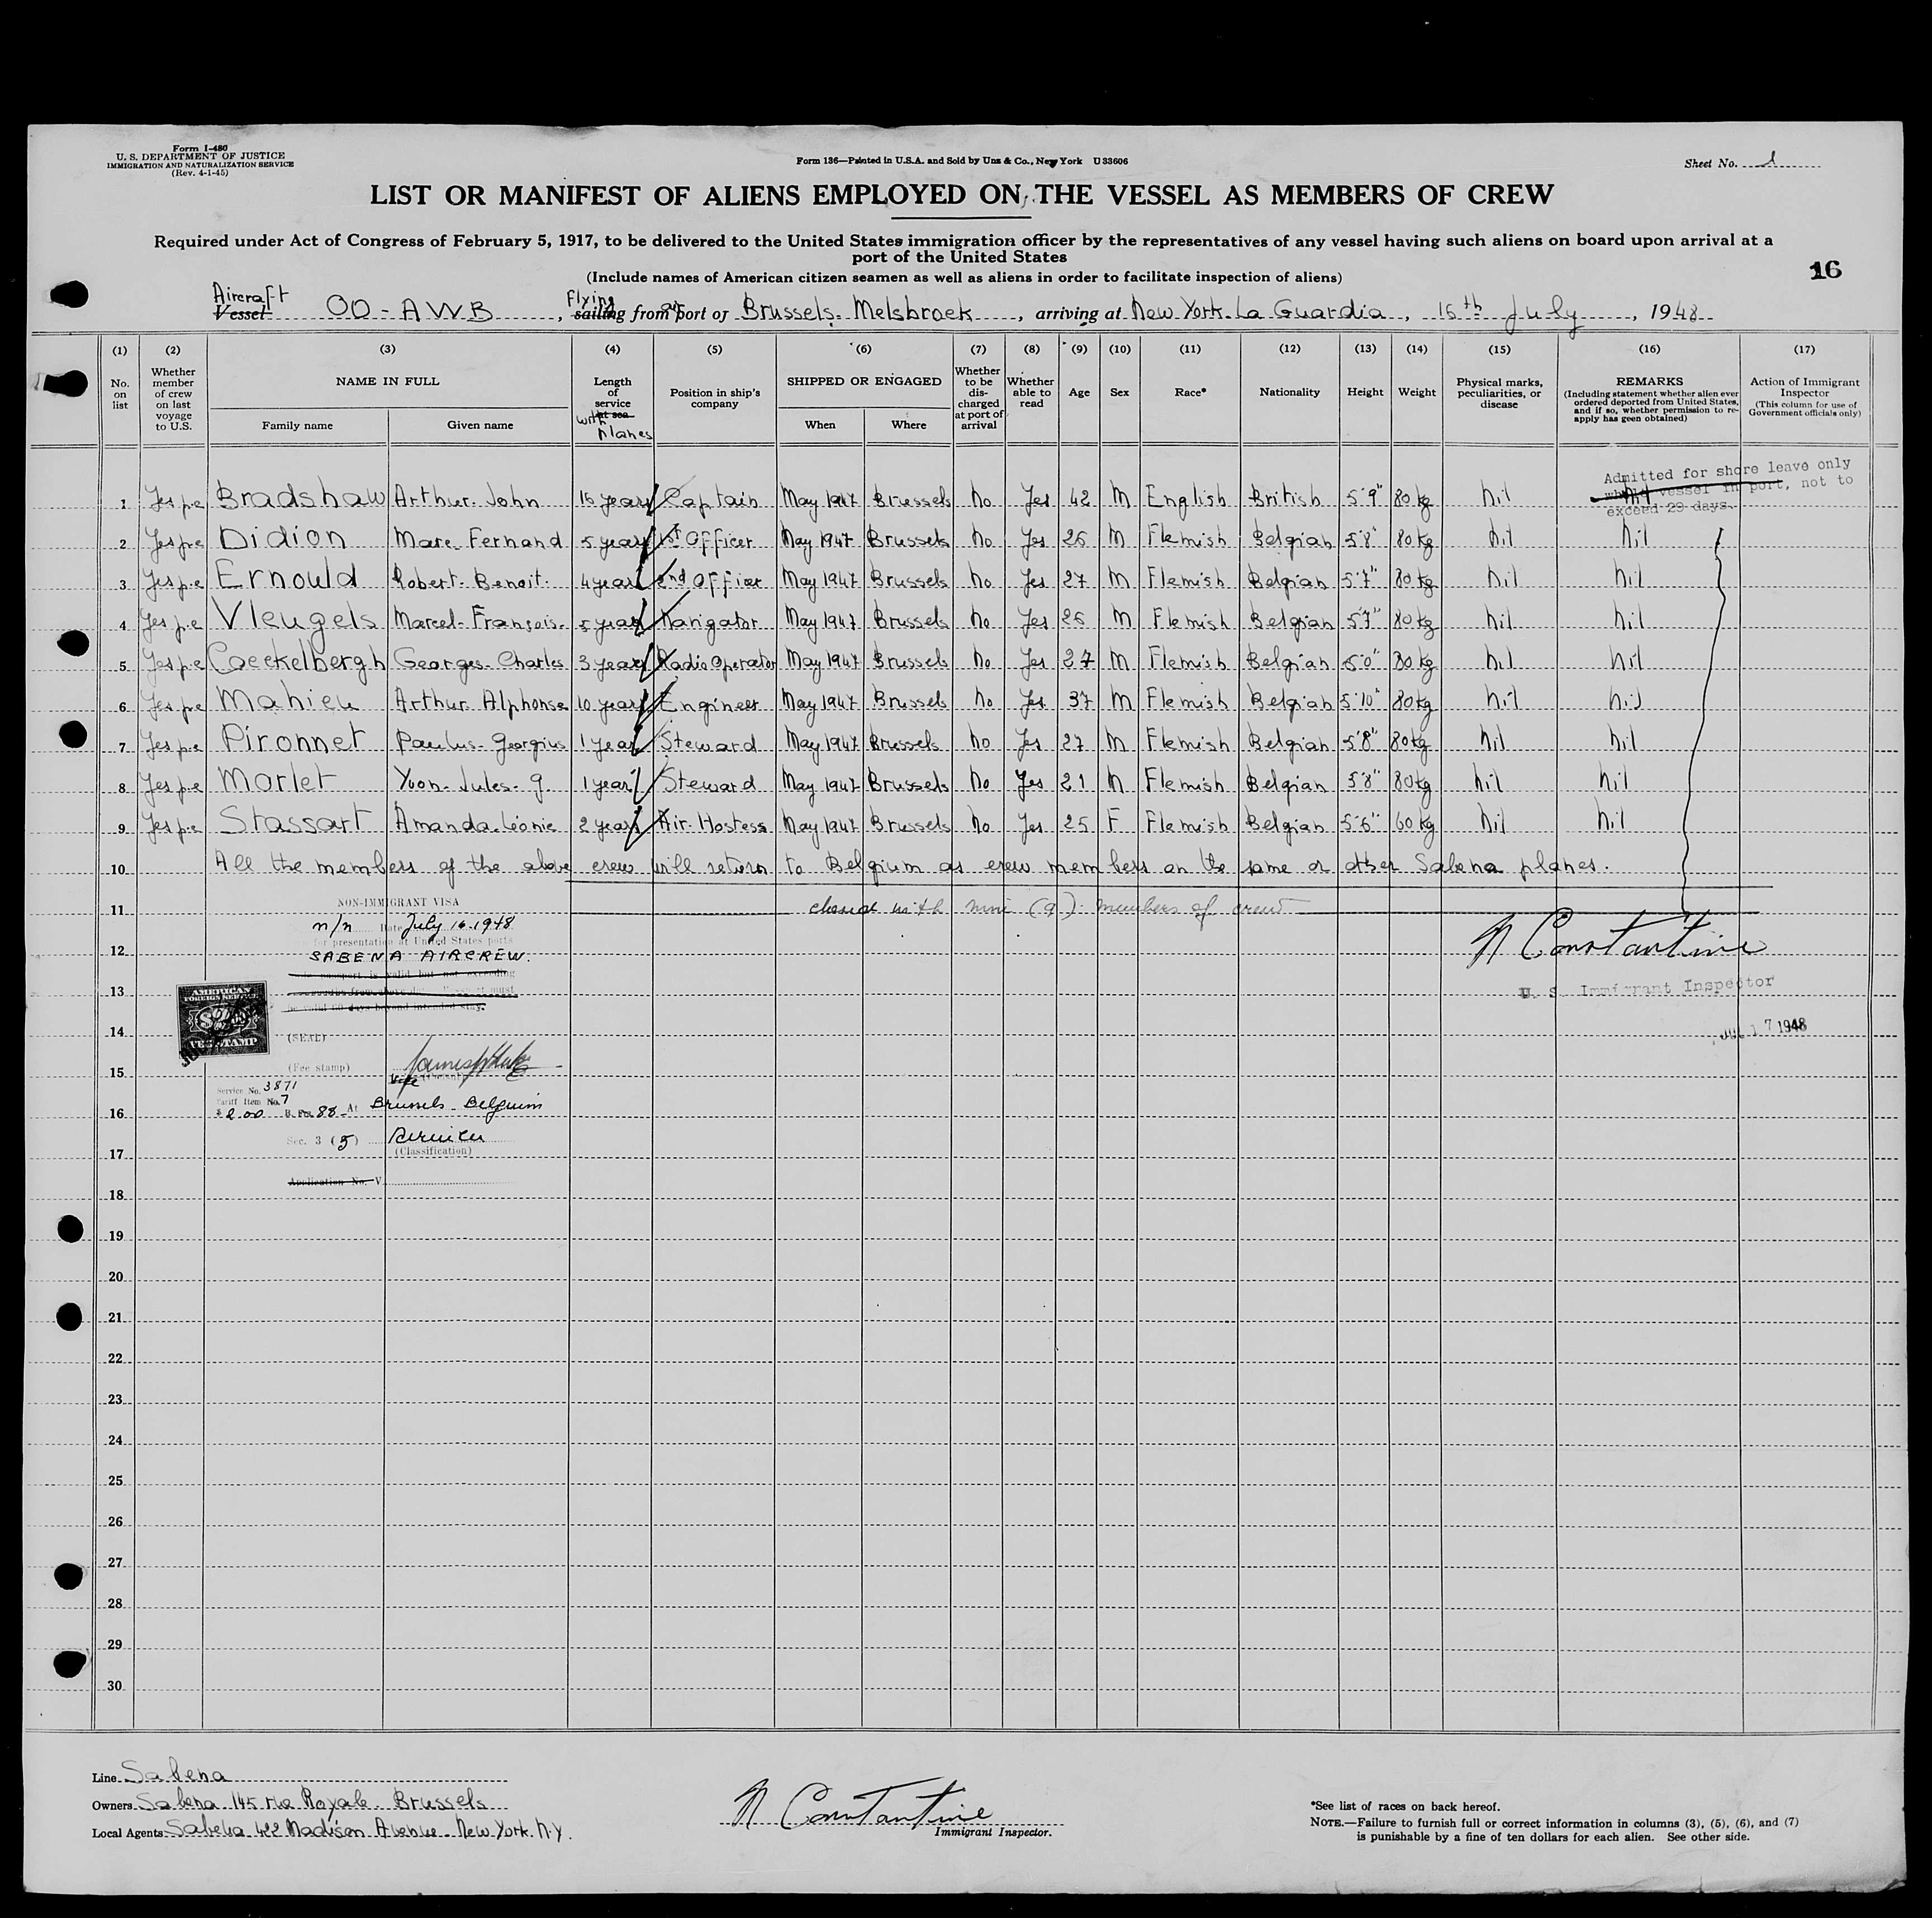 Form I-480
U. S. DEPARTMENT OF JUSTICE
IMMIGRATION AND NATURALIZATION SERVICE
(Rev. 4-1-45)
Form 136—Printed in U.S.A. and Sold by Unz & Co., New York U 33606
Sheet No. 1
LIST OR MANIFEST OF ALIENS EMPLOYED ON THE VESSEL AS MEMBERS OF CREW
Required under Act of Congress of February 5, 1917, to be delivered to the United States immigration officer by the representatives of any vessel having such aliens on board upon arrival at a
port of the United States
(Include names of American citizen seamen as well as aliens in order to facilitate inspection of aliens)
16
Aircraft Flying
Vessel OO-AWB, sailing from air port of Brussels-Melsbroek, arriving at New York La Guardia, 16th July, 1948
(1) (2) (3) (4) (5) (6) (7) (8) (9) (10) (11) (12) (13) (14) (15) (16) (17)
No. on list
Whether member of crew on last voyage to U.S.
NAME IN FULL
Family name Given name
Length of service at sea with planes
Position in ship's company
SHIPPED OR ENGAGED
When Where
Whether to be discharged at port of arrival
Whether able to read
Age
Sex
Race*
Nationality
Height
Weight
Physical marks, peculiarities, or disease
REMARKS
(Including statement whether alien ever ordered deported from United States, and if so, whether permission to re-apply has geen obtained)
Action of Immigrant Inspector
(This column for use of Government officials only)
Admitted for shore leave only
while vessel in port, not to
exceed 29 days.
1 Yes p.e Bradshaw Arthur-John 16 years Captain May 1947 Brussels No Yes 42 M English British 5'9" 80 kg nil nil
2 Yes p.e Didion Marc-Fernand 5 years 1st Officer May 1947 Brussels No Yes 26 M Flemish Belgian 5'8" 80 kg nil nil
3 Yes p.e Ernould Robert-Benoit 4 years 2nd Officer May 1947 Brussels No Yes 27 M Flemish Belgian 5'7" 80 kg nil nil
4 Yes p.e Vleugels Marcel-François 5 years Navigator May 1947 Brussels No Yes 26 M Flemish Belgian 5'7" 80 kg nil nil
5 Yes p.e Caeckelbergh Georges-Charles 3 years Radio Operator May 1947 Brussels No Yes 27 M Flemish Belgian 5'0" 80 kg nil nil
6 Yes p.e Mahieu Arthur Alphonse 10 years Engineer May 1947 Brussels No Yes 37 M Flemish Belgian 5'10" 80 kg nil nil
7 Yes p.e Pironnet Paulus-Georgius 1 year Steward May 1947 Brussels No Yes 27 M Flemish Belgian 5'8" 80 kg nil nil
8 Yes p.e Marlet Yvon-Jules-G. 1 year Steward May 1947 Brussels No Yes 21 M Flemish Belgian 5'8" 80 kg nil nil
9 Yes p.e Stassart Amanda-Léonie 2 years Air-Hostess May 1947 Brussels No Yes 25 F Flemish Belgian 5'6" 60 kg nil nil
10 All the members of the above crew will return to Belgium as crew members on the same or other Sabena planes.
11 closed with nine (9) members of crew
NON-IMMIGRANT VISA
n/n Date July 16-1948
for presentation at United States ports
12 SABENA AIRCREW.
N Constantine
U. S. Immigrant Inspector
JUL 17 1948
13
be valid 60 days beyond intended stay.
AMERICAN
FOREIGN SERVICE
$2
FEE STAMP
14
(SEAL)
15
(Fee stamp)
Vice
Service No. 3871
Tariff Item No. 7
16
$2.00 88- At Brussels-Belgium
Sec. 3 (5)
(Classification)
17
Application No. V
18
19
20
21
22
23
24
25
26
27
28
29
30
Line Sabena
Owners Sabena 145 rue Royale. Brussels
Local Agents Sabena 422 Madison Avenue-New York. N.Y.
N Constantine
Immigrant Inspector.
*See list of races on back hereof.
NOTE.—Failure to furnish full or correct information in columns (3), (5), (6), and (7)
is punishable by a fine of ten dollars for each alien. See other side.